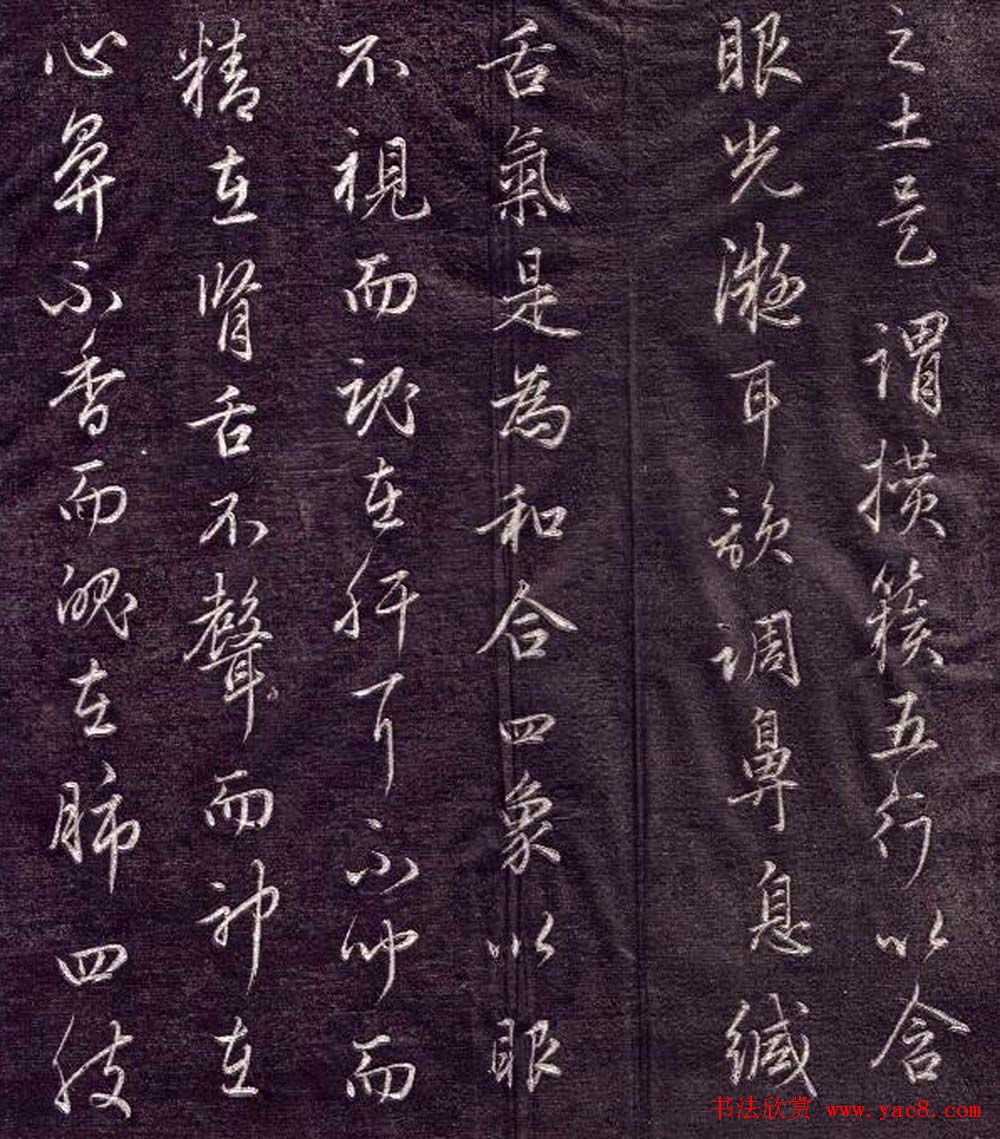 之土是謂攢簇五行以含
眼光凝耳韻調鼻息緘
舌氣是為和合四象以眼
不視而魂在肝耳不听而
精在腎舌不聲而神在
心鼻不香而魄在肺四肢
书法欣赏 www.yac8.com